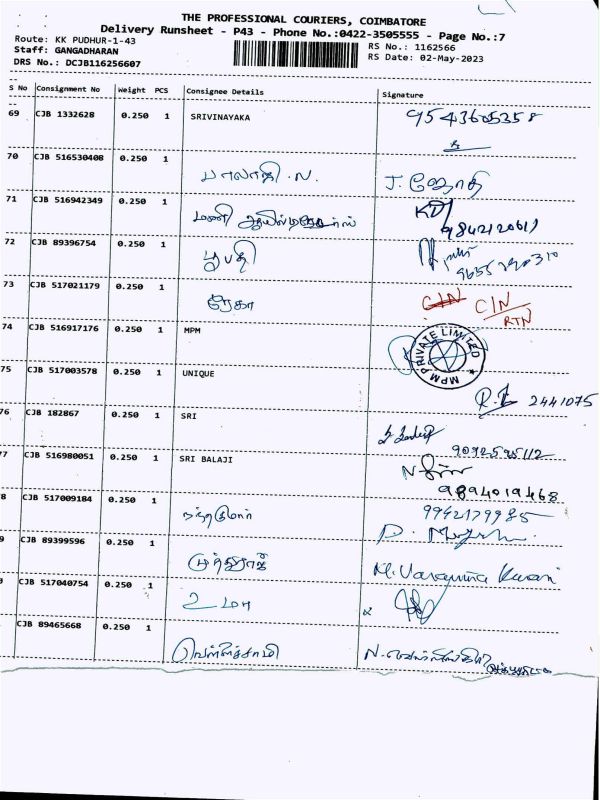 THE PROFESSIONAL COURIERS, COIMBATORE
Delivery Runsheet - P43 - Phone No.:0422-3505555 - Page No.:7
Route: KK PUDHUR-1-43
RS No.: 1162566
Staff: GANGADHARAN
RS Date: 02-May-2023
DRS No.: DCJB116256607
S No Consignment No Weight PCS Consignee Details Signature
69 CJB 1332628 0.250 1 SRIVINAYAKA 9543605358
70 CJB 516530408 0.250 1 பாலாதி .N. J. ஜோதி
71 CJB 516942349 0.250 1 மணி
72 CJB 89396754 0.250 1 பூபதி
73 CJB 517021179 0.250 1 ரேகா CIN CIN
RTN
74 CJB 516917176 0.250 1 MPM MPM PRIVATE LIMITED
75 CJB 517003578 0.250 1 UNIQUE 2441075
76 CJB 182867 0.250 1 SRI
77 CJB 516980051 0.250 1 SRI BALAJI
9894019468
8 CJB 517009184 0.250 1 நந்தகுமார் 9942179985
9 CJB 89399596 0.250 1 முத்துராஜ்
CJB 517040754 0.250 1 உமா
CJB 89465668 0.250 1 வெள்ளிச்சாமி